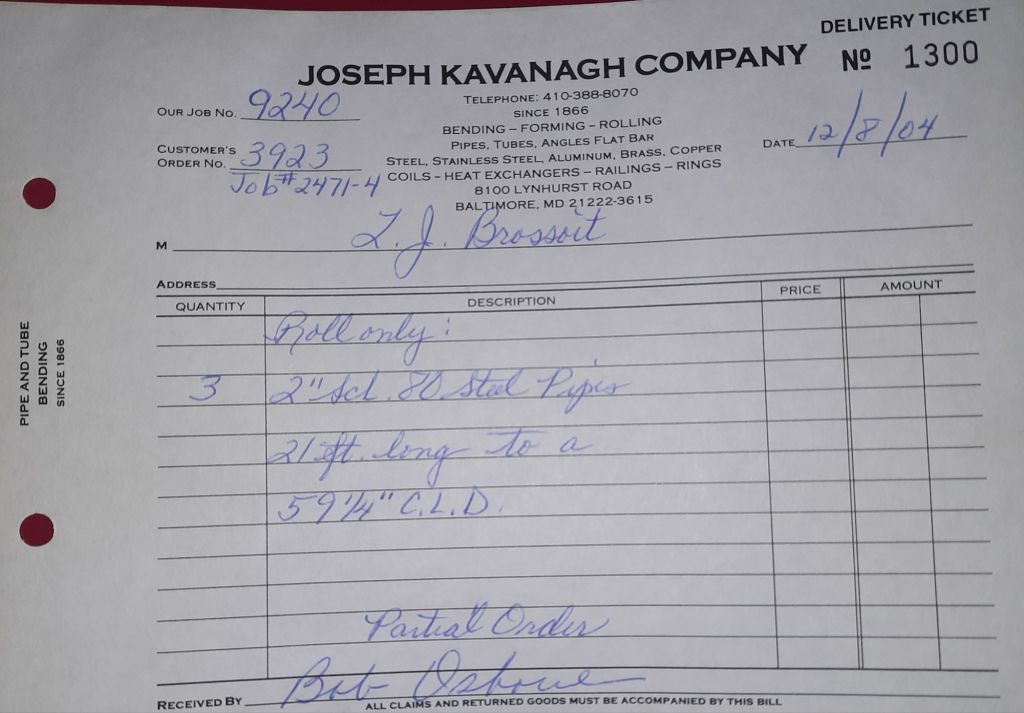 DELIVERY TICKET
JOSEPH KAVANAGH COMPANY
Nº 1300
TELEPHONE: 410-388-8070
SINCE 1866
BENDING – FORMING – ROLLING
PIPES, TUBES, ANGLES FLAT BAR
STEEL, STAINLESS STEEL, ALUMINUM, BRASS, COPPER
COILS – HEAT EXCHANGERS – RAILINGS – RINGS
8100 LYNHURST ROAD
BALTIMORE, MD 21222-3615
OUR JOB NO. 9240
CUSTOMER'S
ORDER NO. 3923
Job# 2471-4
DATE 12/8/04
M L.J. Brossoit
ADDRESS
QUANTITY DESCRIPTION PRICE AMOUNT
Roll only:
3 2" Sch. 80 Steel Pipes
21 ft. long to a
59 1/4" C.L.D.
Partial Order
RECEIVED BY Bob Osborne
ALL CLAIMS AND RETURNED GOODS MUST BE ACCOMPANIED BY THIS BILL
PIPE AND TUBE
BENDING
SINCE 1866